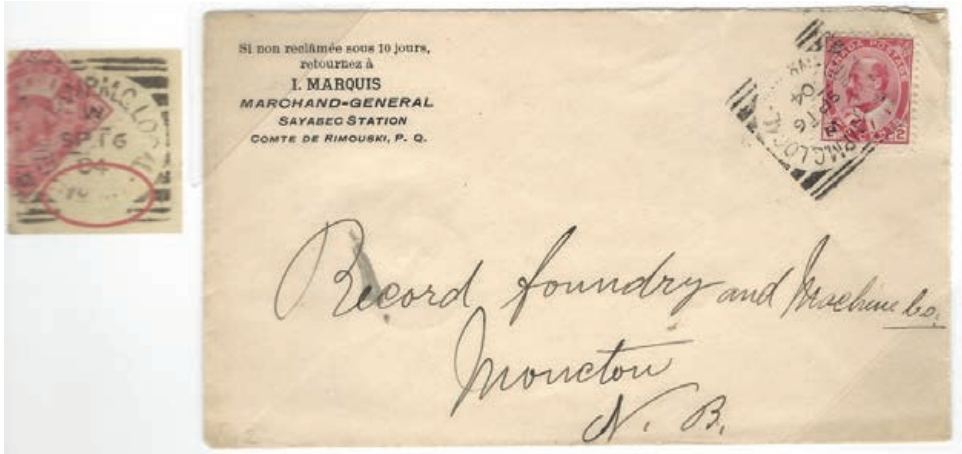 R.M.C. LOCAL
M
SP 16
04
Si non reclâmée sous 10 jours,
retournez à
I. MARQUIS
MARCHAND-GENERAL
SAYABEC STATION
COMTE DE RIMOUSKI, P. Q.
CANADA POSTAGE
2
R.M.C. LOCAL
M
SP 16
04
Record foundry and Machine Co.
Moncton
N. B.